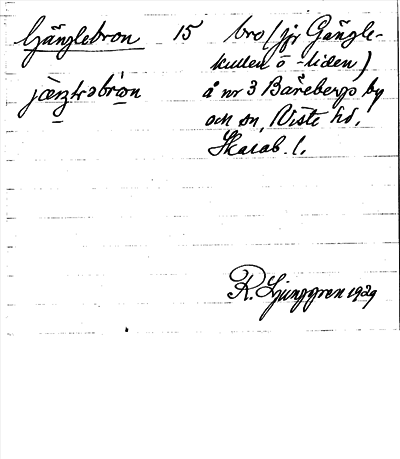 Gänglebron 15 bro (jfr Gängle-
kullen o -liden)
å nr 3 Bärebergs by
och sn, Viste hd,
Skarab. l.
R. Ljunggren 1929